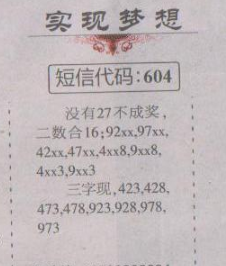 实现梦想
短信代码:604
没有27不成奖,
二数合16;92xx,97xx,
42xx,47xx,4xx8,9xx8,
4xx3,9xx3
三字现,423,428,
473,478,923,928,978,
973